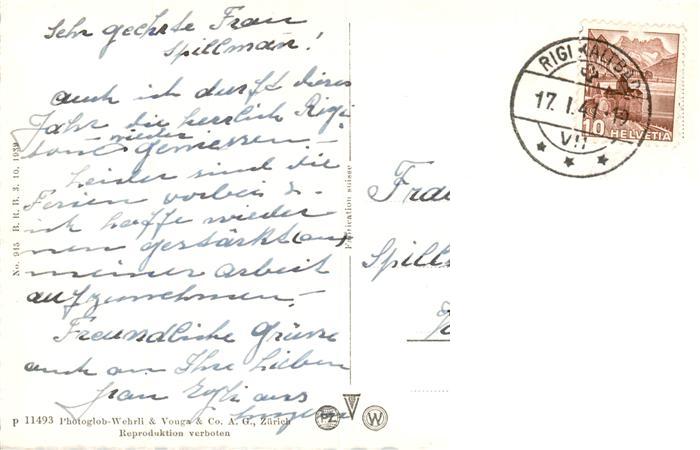 Sehr geehrte Frau
Spillman!
auch ich durfte dieses
Jahr die herrlich Rigi
wieder
geniessen -
Leider sind die
Ferien vorbei &
ich hoffe wieder
neu gestärkt (an)
meiner Arbeit
aufzunehmen, -
Freundliche Grüsse
auch an Ihre Lieben
aus
No. 915 B. R. B. 3. 10. 1939
Fabrication suisse
P 11493 Photoglob-Wehrli & Vouga & Co. A. G., Zürich
Reproduktion verboten
PZ
W
RIGI KALTBAD
17. I. 41-19
VII
10 HELVETIA
Frau
Spill